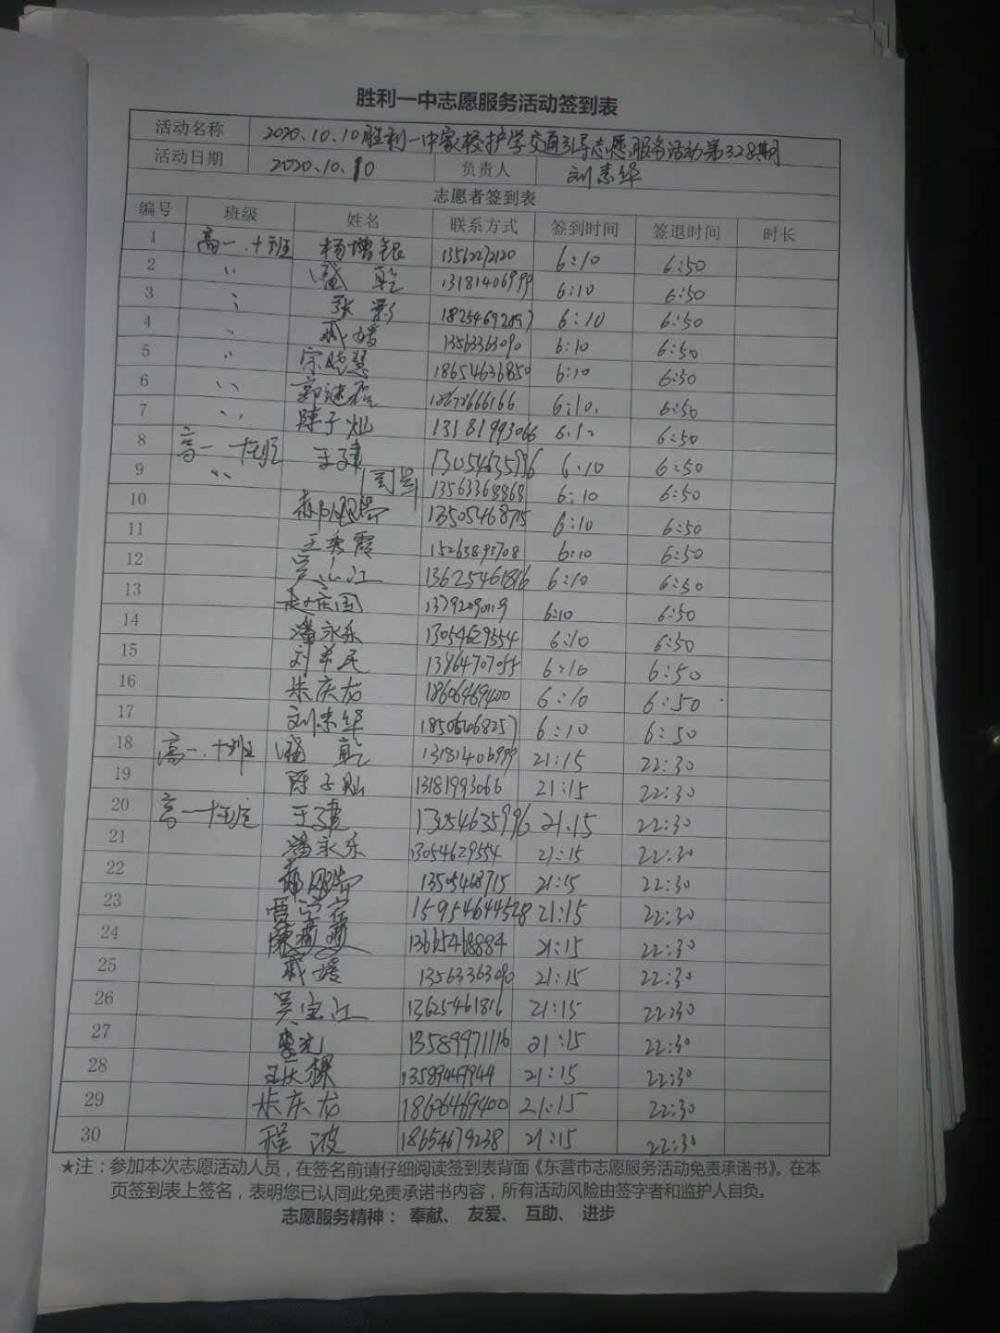 胜利一中志愿服务活动签到表
活动名称 2020.10.10胜利一中家校护学交通引导志愿服务活动第328期
活动日期 2020.10.10 负责人 刘志华
志愿者签到表
编号 班级 姓名 联系方式 签到时间 签退时间 时长
1 高一.十班 杨增银 13562272120 6:10 6:50
2 〃 乾 13181406999 6:10 6:50
3 〃 张彩 6:10 6:50
4 〃 臧 13563363090 6:10 6:50
5 〃 宗晓慧 18654636850 6:10 6:50
6 〃 郭 6:10. 6:50
7 〃 陈子灿 13181993066 6:10 6:50
8 高一 十班 王建 13054635996 6:10 6:50
9 〃 13563368868 6:10 6:50
10 13505468715 6:10 6:50
11 王秀霞 6:10 6:50
12 吴 江 13625461816 6:10 6:50
13 赵庆国 6:10 6:50
14 潘永乐 13054629554 6:10 6:50
15 刘 民 13964707055 6:10 6:50
16 朱庆龙 18606469400 6:10 6:50
17 刘志华 6:10 6:50
18 高一.十班 乾 13181406999 21:15 22:30
19 陈子灿 13181993066 21:15 22:30
20 高一十班 王建 13054635996 21:15 22:30
21 潘永乐 13054629554 21:15 22:30
22 13505468715 21:15 22:30
23 15954644528 21:15 22:30
24 13665468884 21:15 22:30
25 臧 13563363090 21:15 22:30
26 吴宝江 13625461816 21:15 22:30
27 13589971116 21:15 22:30
28 王 13589449944 21:15 22:30
29 朱庆龙 18606469400 21:15 22:30
30 程波 18654679238 21:15 22:30
★注：参加本次志愿活动人员，在签名前请仔细阅读签到表背面《东营市志愿服务活动免责承诺书》。在本
页签到表上签名，表明您已认同此免责承诺书内容，所有活动风险由签字者和监护人自负。
志愿服务精神： 奉献、 友爱、 互助、 进步